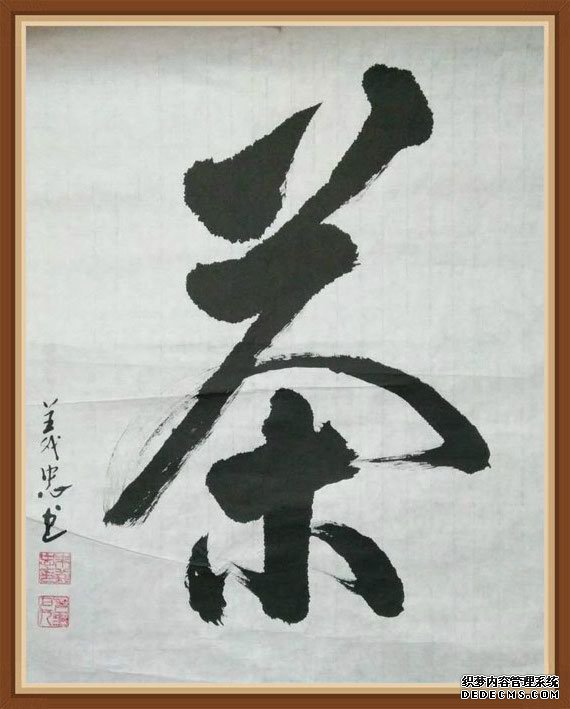 茶
義忠书
织梦内容管理系统
DEDECMS.COM